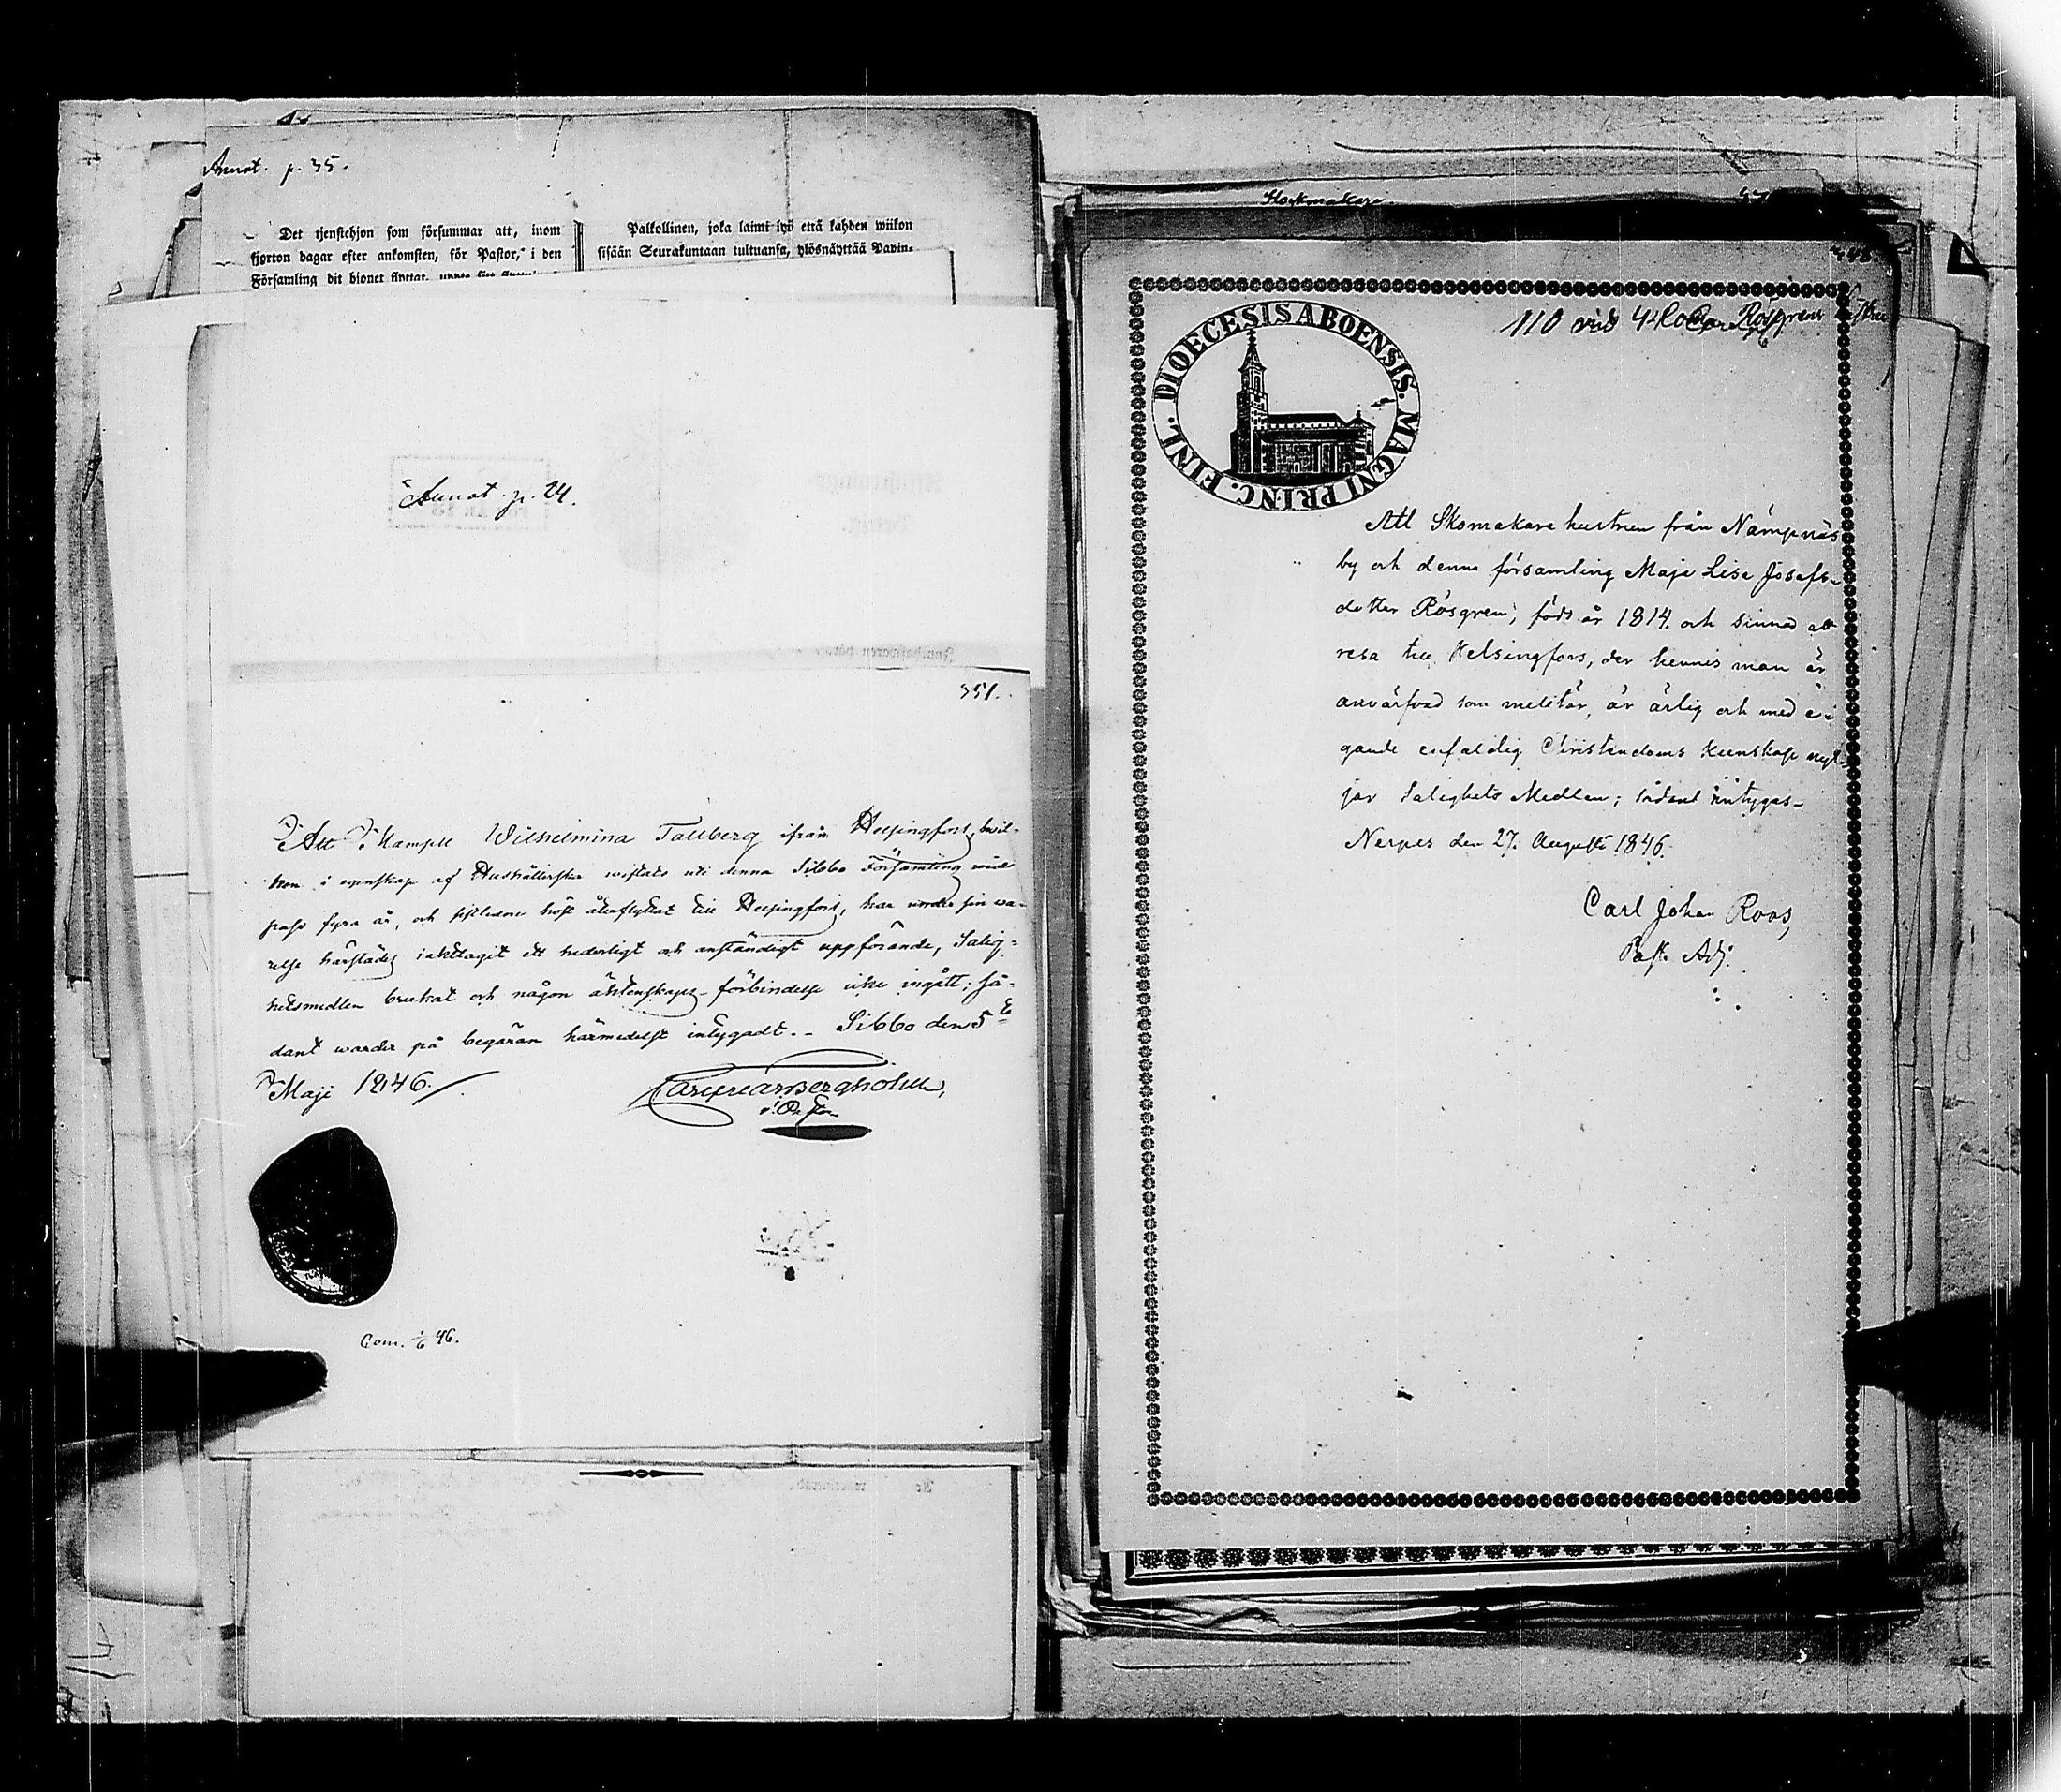 Annot. p. 35.
Det tjenstehjon som försummar att, inom
fjorton dagar efter ankomsten, för Pastor, i den
Församling dit hjonet flyttat, uppte
Palkollinen, joka laimi lyö että kahden wiikon
sisään Seurakuntaan tultuansa, ylösnäyttää Pavin=
Annot. p. 24.
351.
Att Mamsell Wilhelmina Tallberg ifrån Helsingfors, hvil-
ken i egenskap af Hushållerska wistats uti denna Sibbo Församling wid
pass fyra år, och sistledne höst återflyttat till Helsingfors, har under sin wa-
relse härstädes iakttagit ett hederligt och anständigt uppförande, Salig-
hetsmedlen brukat och någon äktenskaps-förbindelse icke ingått; så-
dant warder på begäran härmedelst intygadt. - Sibbo den 5te
Maji 1846.
Bergholm,
Com. 1/6 46.
Skomakare
448
110 vid
DIOECESIS ABOENSIS. MAGNI PRINC. FINL.
Att Skomakare hustrun från Nämpnäs
by och denna församling Maja Lisa Josefs-
dotter Rosgren, född år 1814 och sinnad att
resa till Helsingfors, der hennes man är
anvärfvad som militär, är ärlig och med e
gande enfaldig Christendoms kunskap nyt-
jar Salighets Medlen; sådant intygas-
Nerpes den 27. Augusti 1846.
Carl Johan Roos,
Past. Adj.